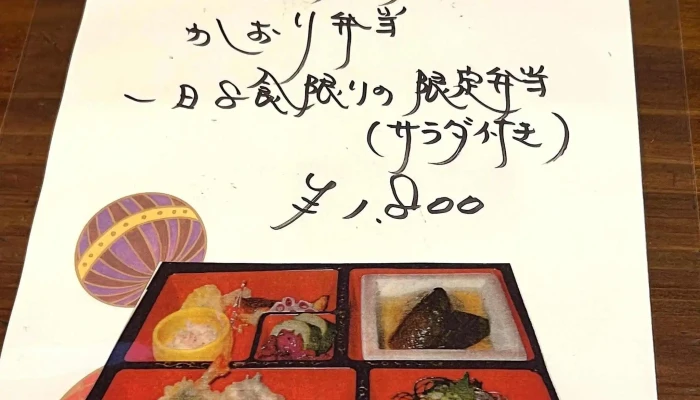 かしおり弁当
一日8食限りの限定弁当
(サラダ付き)
¥1,800